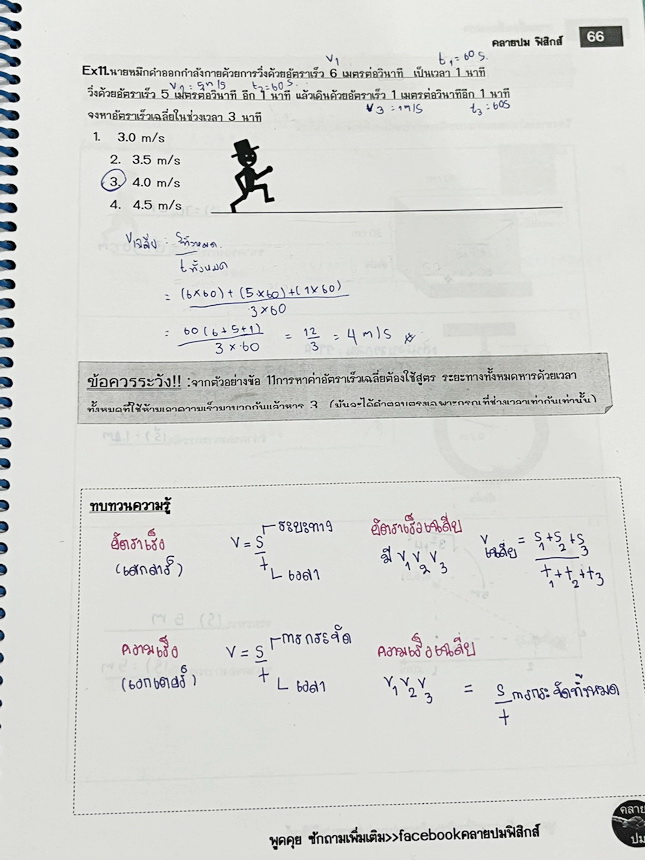 คลายปม ฟิสิกส์ 66
v₁ t₁ = 60 s.
Ex11.นายหมึกดำออกกำลังกายด้วยการวิ่งด้วยอัตราเร็ว 6 เมตรต่อวินาที เป็นเวลา 1 นาที
v₂ = 5m/s t₂ = 60 s.
วิ่งด้วยอัตราเร็ว 5 เมตรต่อวินาที อีก 1 นาที แล้วเดินด้วยอัตราเร็ว 1 เมตรต่อวินาทีอีก 1 นาที
v₃ = 1m/s t₃ = 60s
จงหาอัตราเร็วเฉลี่ยในช่วงเวลา 3 นาที
1. 3.0 m/s
2. 3.5 m/s
3. 4.0 m/s
4. 4.5 m/s
v เฉลี่ย = sทั้งหมด
t ทั้งหมด
= (6×60) + (5×60) + (1×60)
3×60
= 60 (6+5+1) = 12 = 4 m/s
3 × 60 3
ข้อควรระวัง!! :จากตัวอย่างข้อ 11การหาค่าอัตราเร็วเฉลี่ยต้องใช้สูตร ระยะทางทั้งหมดหารด้วยเวลา
ทั้งหมดที่ใช้ห้ามเอาความเร็วมาบวกกันแล้วหาร 3 (มันจะได้คำตอบตรงเฉพาะกรณีที่ช่วงเวลาเท่ากันเท่านั้น)
ทบทวนความรู้
อัตราเร็ว v = s ระยะทาง อัตราเร็วเฉลี่ย v เฉลี่ย = s₁ + s₂ + s₃
(สเกลาร์) t เวลา มี v₁ v₂ v₃ t₁ + t₂ + t₃
ความเร็ว v = s การกระจัด ความเร็วเฉลี่ย
(เวกเตอร์) t เวลา v₁ v₂ v₃ = s การกระจัดทั้งหมด
t
คลาย
ปม
พูดคุย ซักถามเพิ่มเติม>>facebookคลายปมฟิสิกส์